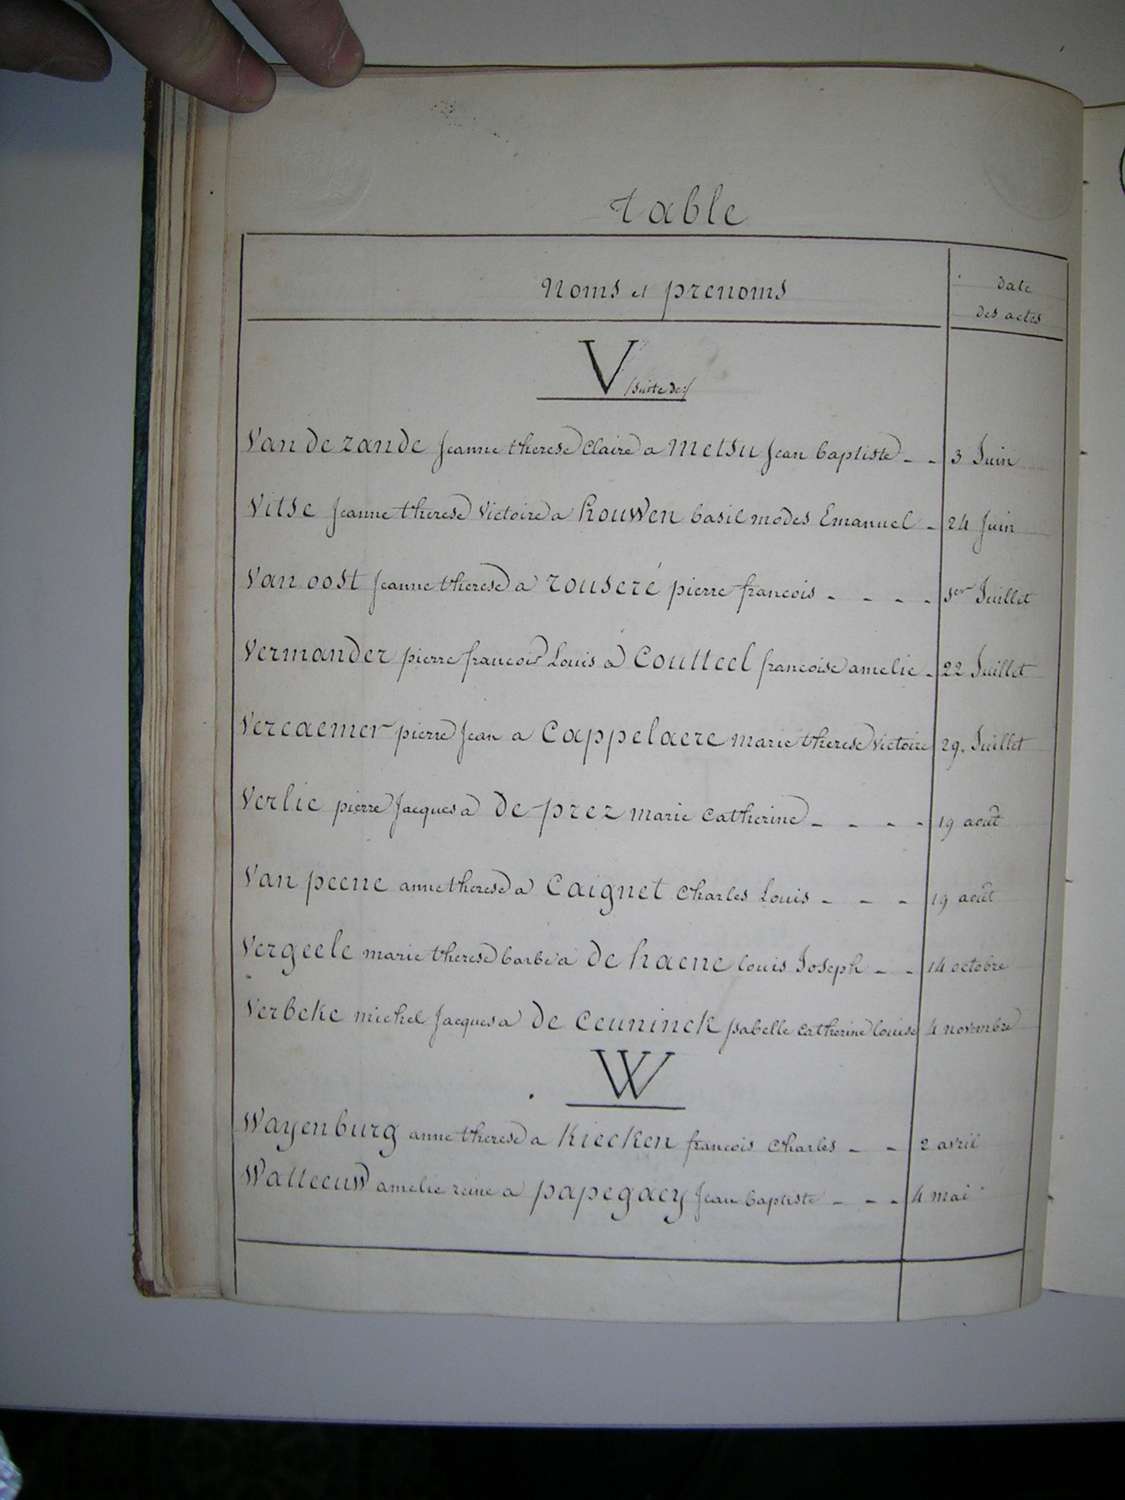 table
Noms et prenoms
date
des actes
V /suite de/
Van de zande Jeanne therese Claire a Metsu Jean baptiste - - 3 Juin
Vitse Jeanne therese Victoire a houwen basil modes Emanuel - 24 Juin
Van oost Jeanne therese a rouseré pierre francois - - - - 1er Juillet
Vermander pierre francois Louis a Coutteel francoise amelie - 22 Juillet
Vercaemer pierre Jean a Cappelaere marie therese victoire 29. Juillet
Verlie pierre Jacques a de prez marie catherine - - - - 19 août
Van peene anne therese a Caignet Charles Louis - - - 19 août
Vergeele marie therese barbe a de haene louis Joseph - - 14 octobre
Verbeke michel Jacques a de Ceuninck isabelle catherine louise 4 novmbre
W
Wayenburg anne therese a Kiecken francois Charles - - 2 avril
Watteeuw amelie reine a papegaey Jean baptiste - - - 4 mai